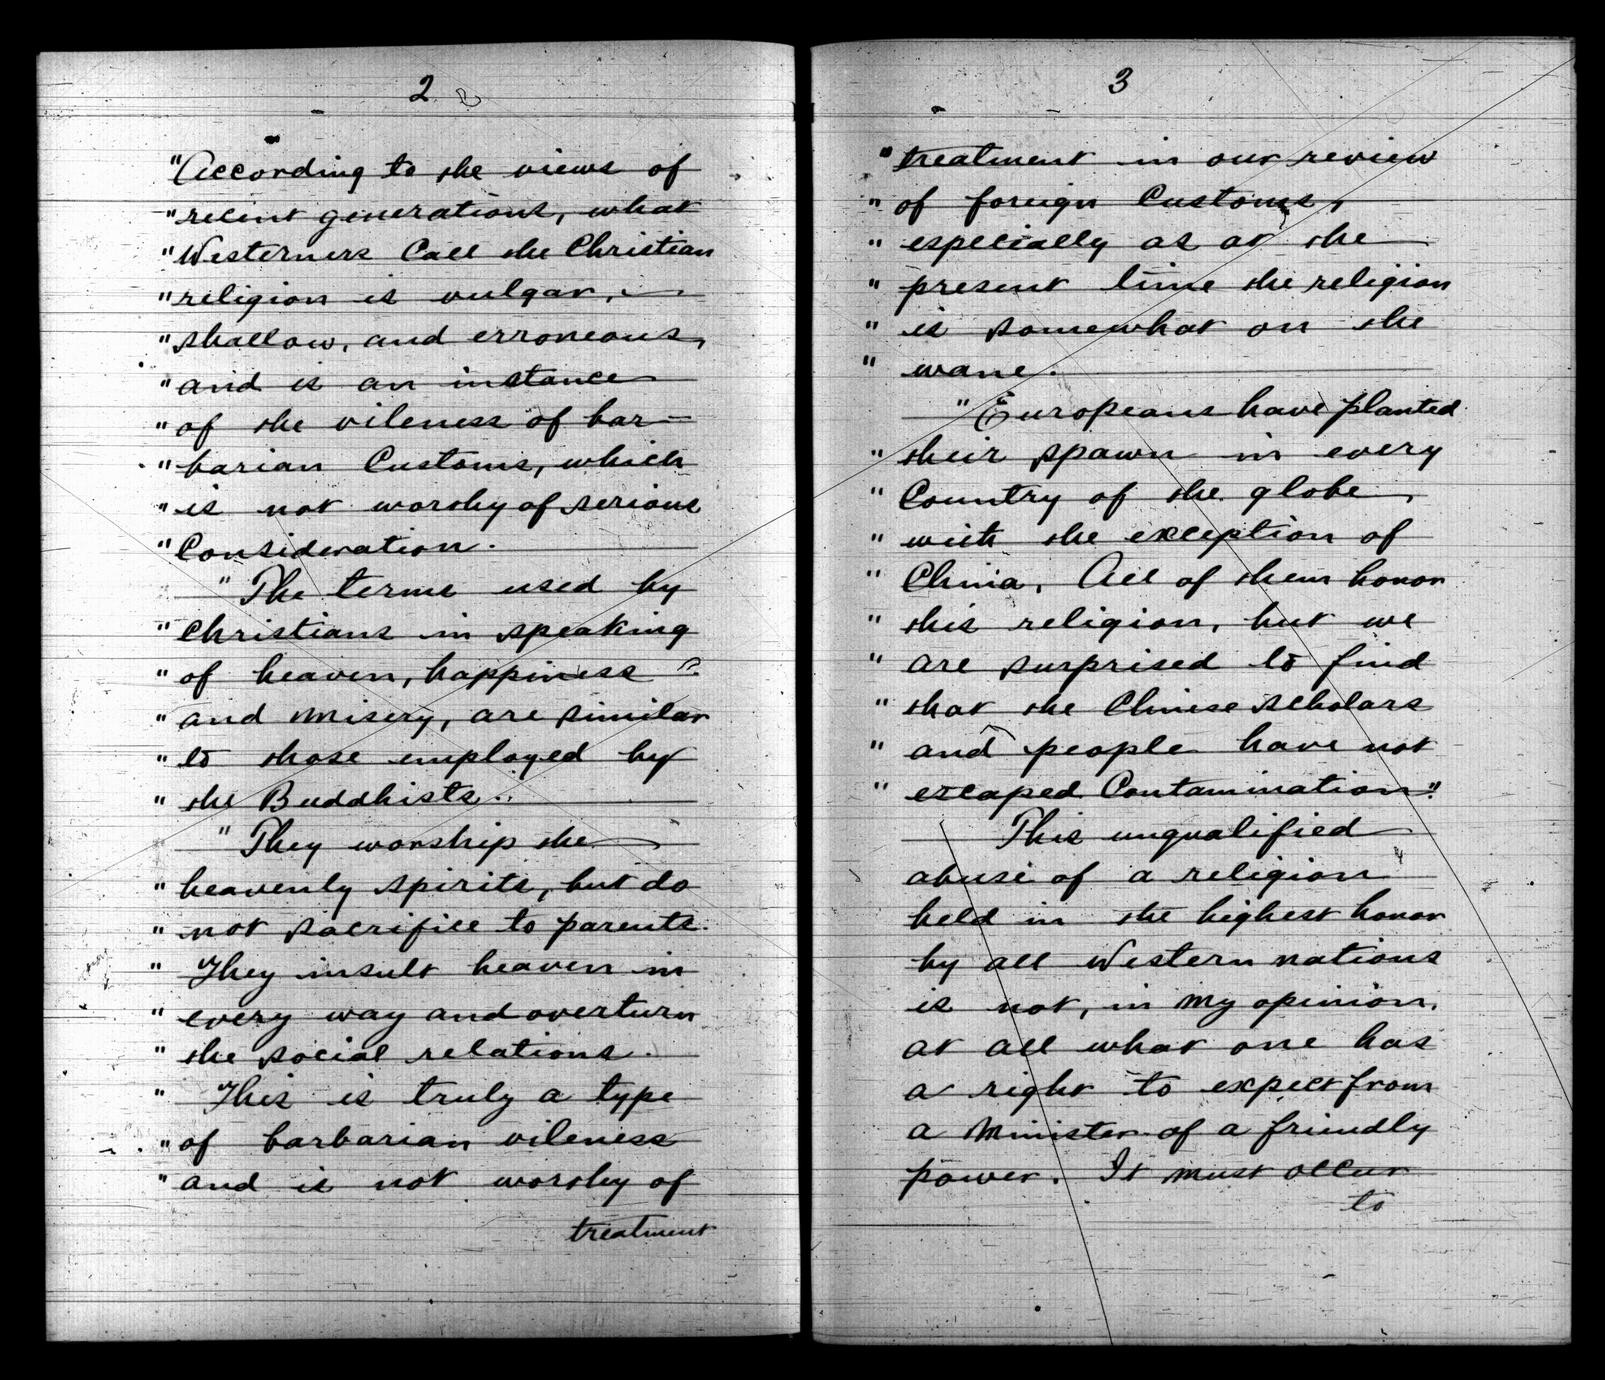 2
"According to the views of
"recent generations, what
"Westerners Call the Christian
"religion is vulgar,
"shallow, and erroneous,
"and is an instance
"of the vileness of bar-
"barian Customs, which
"is not worthy of serious
"Consideration.
"The terms used by
"Christians in speaking
"of heaven, happiness
"and misery, are similar
"to those employed by
"the Buddhists.
"They worship the
"heavenly spirits, but do
"not sacrifice to parents.
"They insult heaven in
"every way and overturn
"the social relations.
"This is truly a type
"of barbarian vileness
"and is not worthy of
treatment
3
"treatment in our review
"of foreign Customs,
"especially as at the
"present time the religion
"is somewhat on the
"wane.
"Europeans have planted
"their spawn in every
"Country of the globe,
"with the exception of
"China. All of them honor
"this religion, but we
"are surprised to find
"that the Chinese scholars
"and people have not
"escaped Contamination."
This unqualified
abuse of a religion
held in the highest honor
by all Western nations
is not, in my opinion,
at all what one has
a right to expect from
a Minister of a friendly
power. It must occur
to